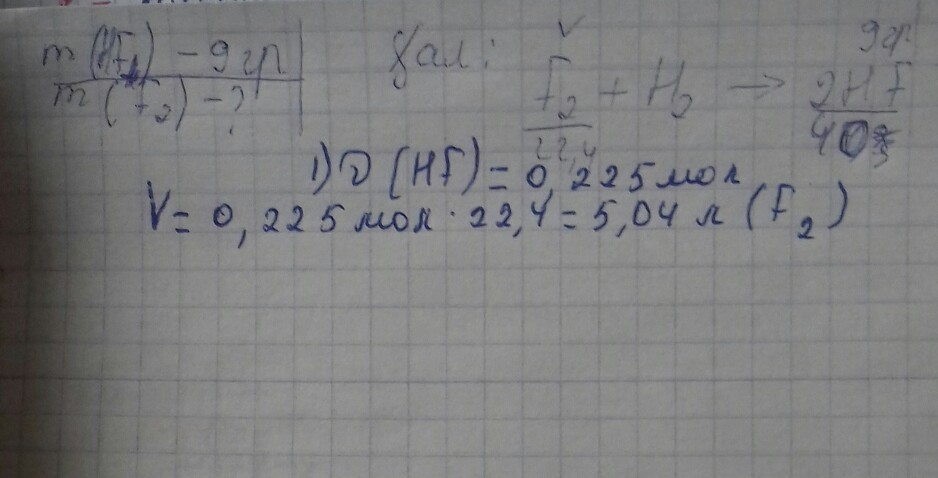 m(HF) - 9 гр
m(F₂) - ?
V 9 гр
F₂ + H₂ → 2HF
22,4 40
1) ν(HF) = 0,225 мол
V = 0,225 мол · 22,4 = 5,04 л (F₂)